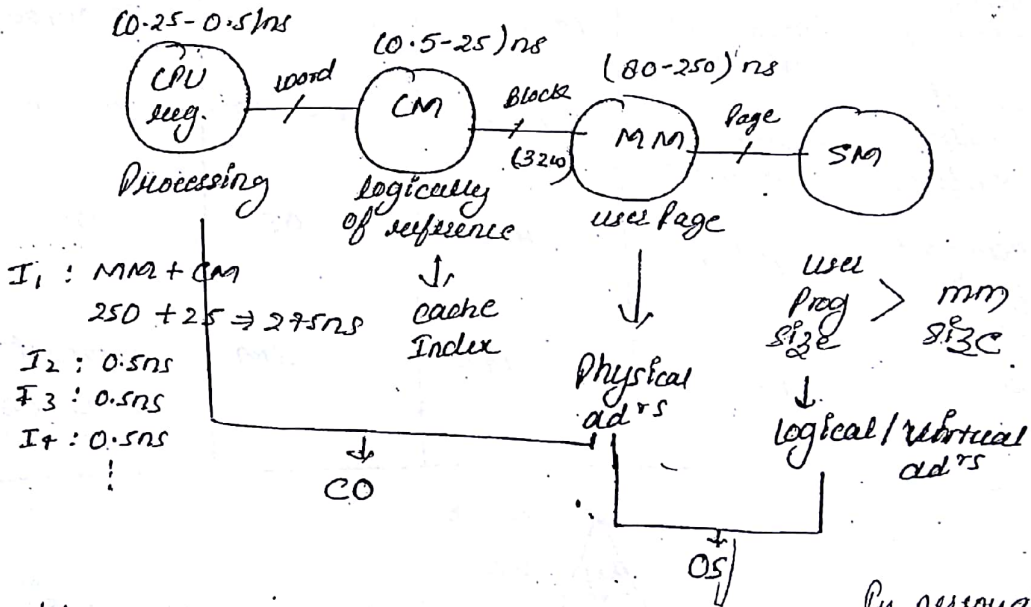 (0.25-0.5)ns
(0.5-25)ns
(80-250)ns
CPU reg.
word
CM
Block
(32W)
MM
Page
SM
Processing
logically of reference
user Page
I1 : MM + CM
250 + 25 ⇒ 275ns
I2 : 0.5ns
I3 : 0.5ns
I4 : 0.5ns
↓
cache
Index
↓
Physical
adrs
user
Prog > mm
size size
↓
logical / virtual
adrs
CO
OS